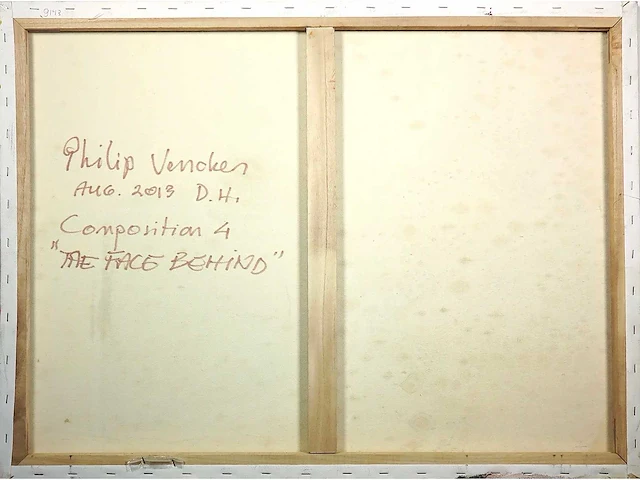 Philip Vencken
AUG. 2013 D.H.
Composition 4
"THE FACE BEHIND"